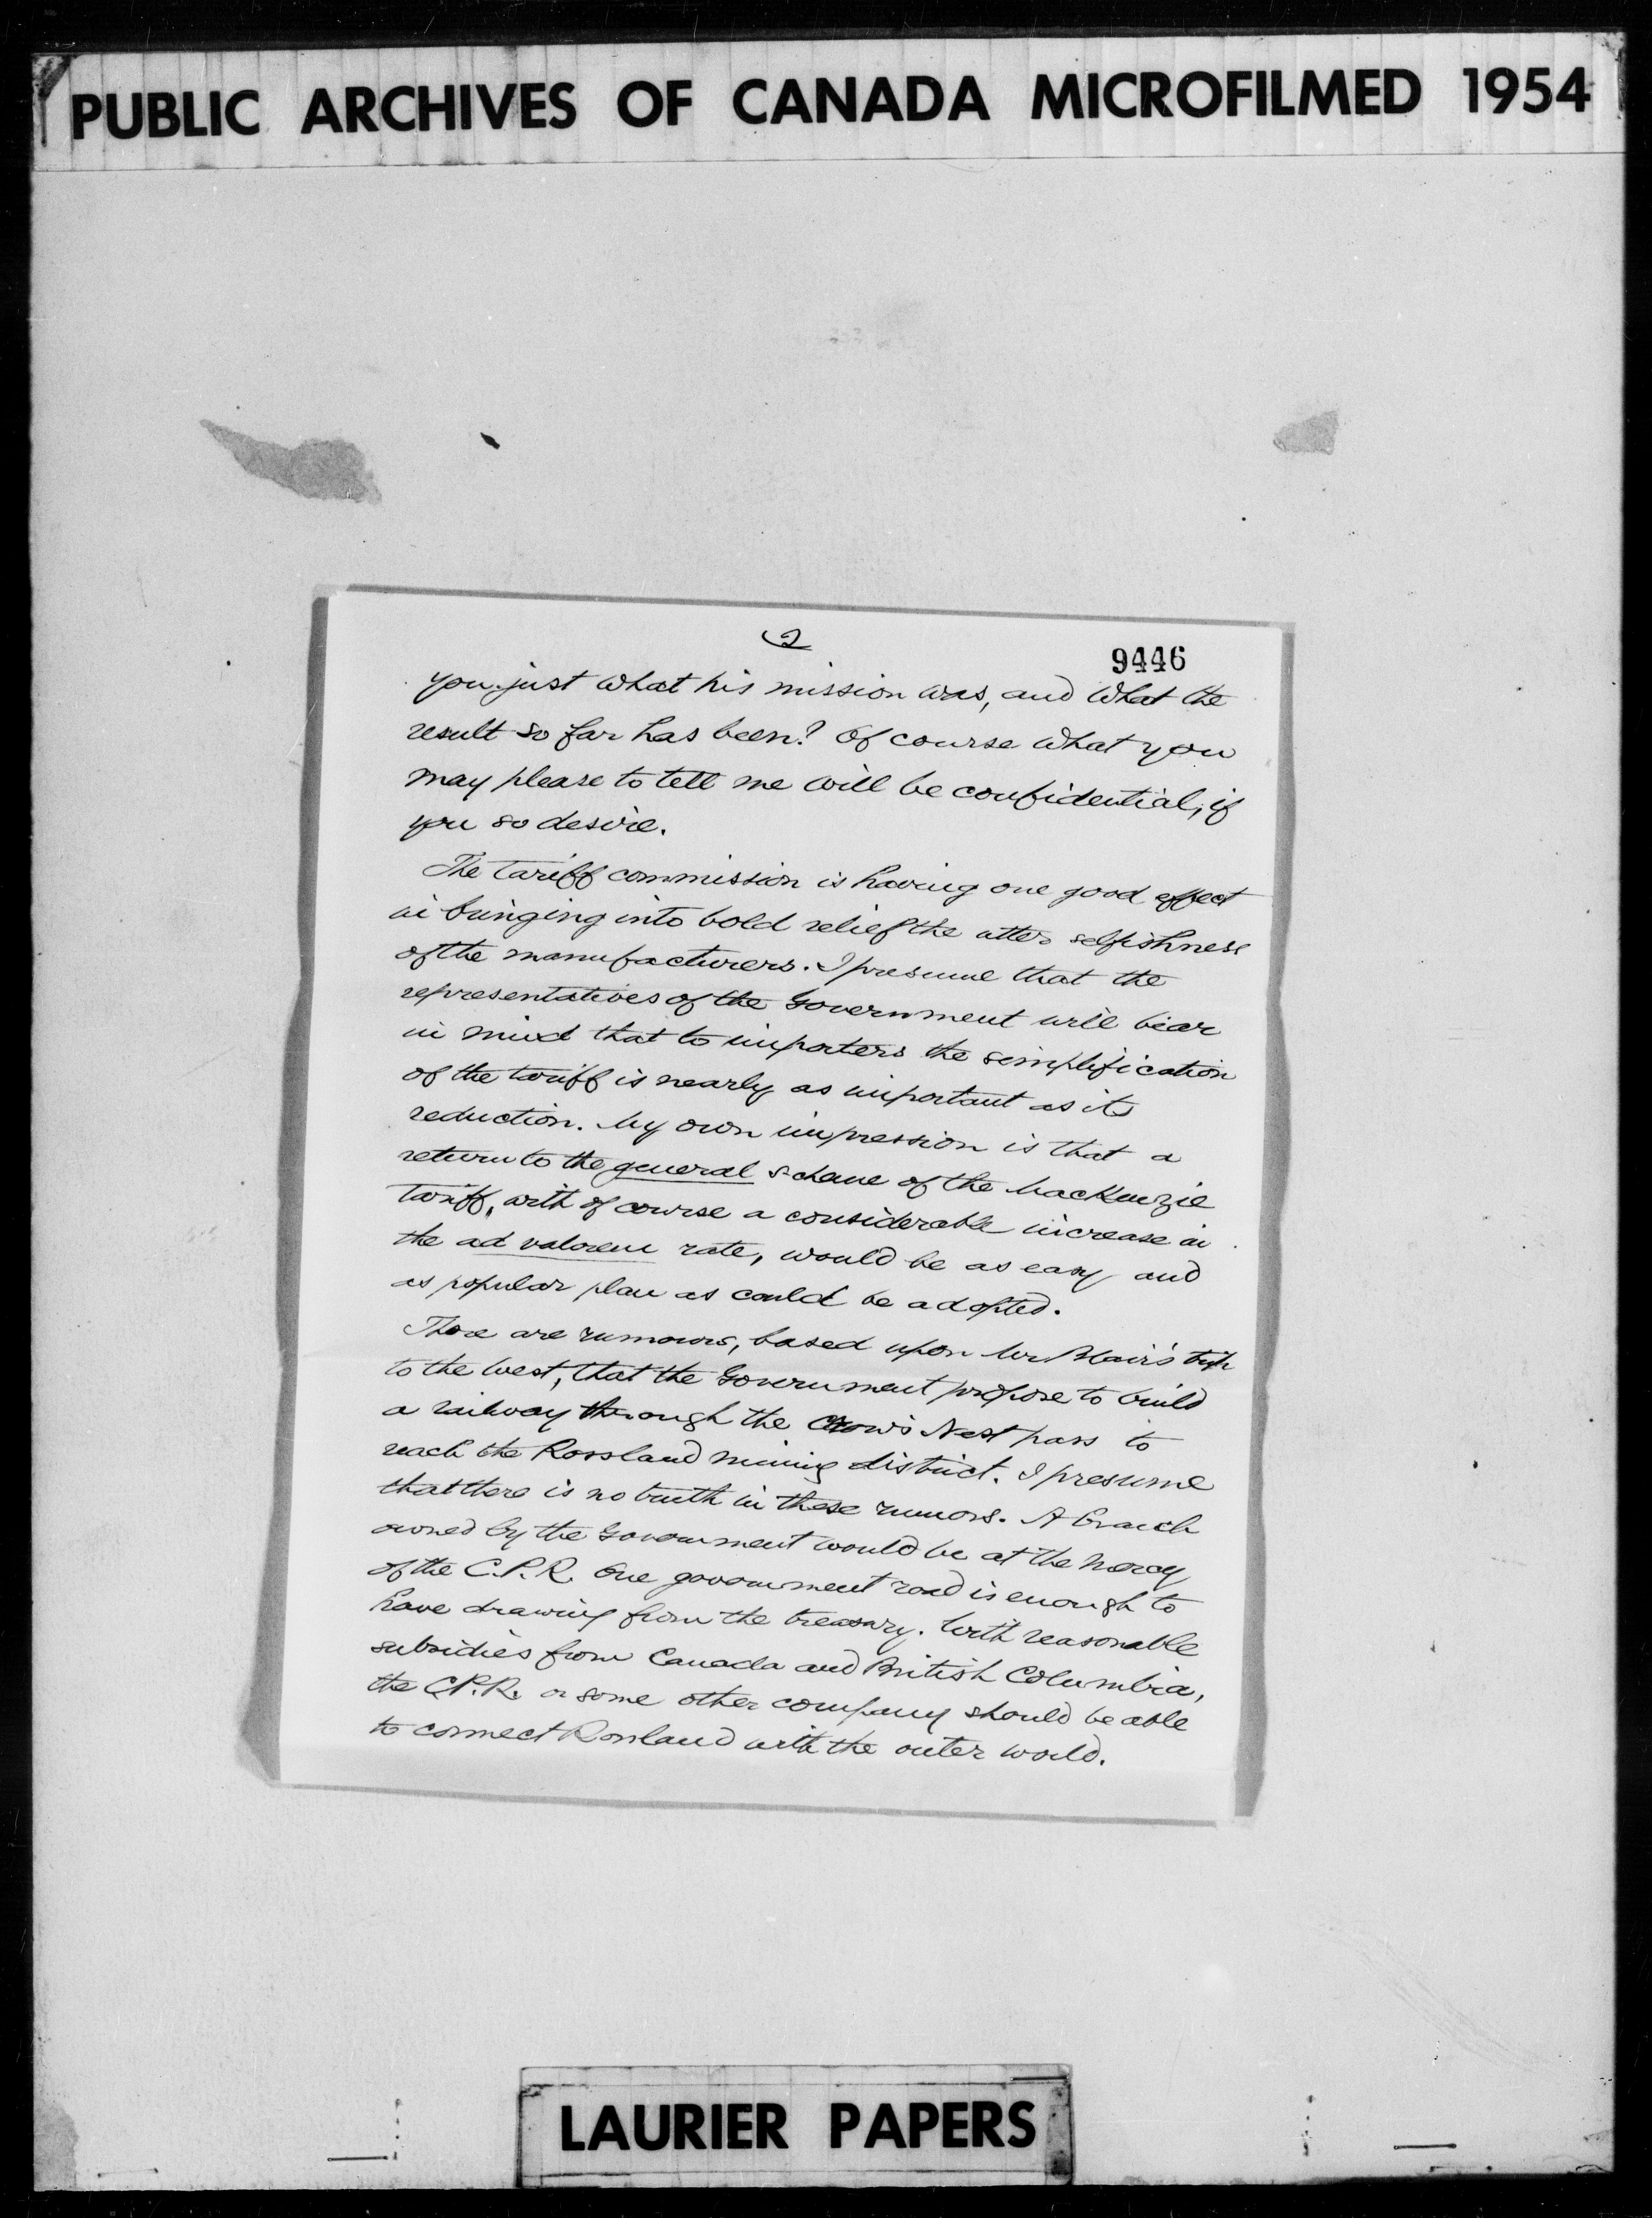 PUBLIC ARCHIVES OF CANADA MICROFILMED 1954
2
9446
you just what his mission was, and what the
result so far has been? Of course what you
may please to tell me will be confidential, if
you so desire.
The tariff commission is having one good effect
in bringing into bold relief the utter selfishness
of the manufacturers. I presume that the
representatives of the Government will bear
in mind that to importers the simplification
of the tariff is nearly as important as its
reduction. My own impression is that a
return to the general scheme of the MacKenzie
tariff, with of course a considerable increase in
the ad valorem rate, would be as easy and
as popular plan as could be adopted.
There are rumours, based upon Mr Blair's trip
to the West, that the Government propose to build
a railway through the Crow's Nest pass to
reach the Rossland mining district. I presume
that there is no truth in these rumors. A branch
owned by the Government would be at the mercy
of the C.P.R. One government road is enough to
have drawing from the treasury. With reasonable
subsidies from Canada and British Columbia,
the C.P.R. or some other company should be able
to connect Rossland with the outer world.
LAURIER PAPERS